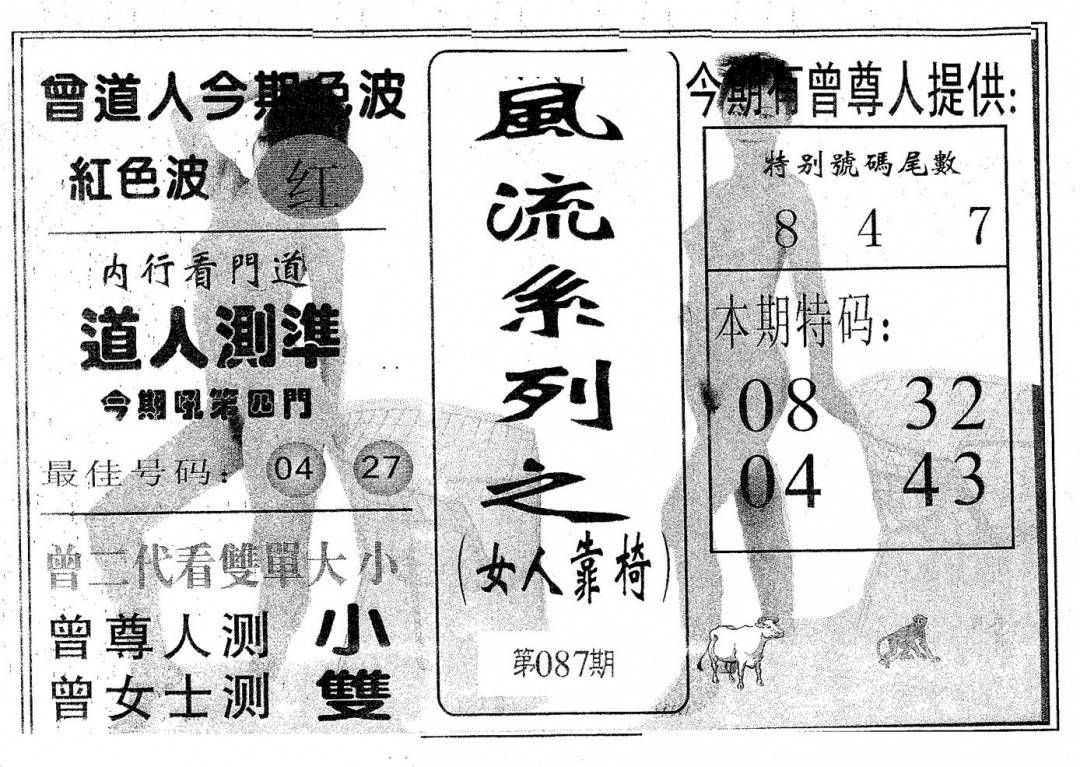 曾道人今期色波
紅色波 红
内行看門道
道人測準
今期吼第四門
最佳号码: 04 27
曾二代看雙單大小
曾尊人测 小
曾女士测 雙
風流系列之
(女人靠椅)
第087期
今期有曾尊人提供:
特别號碼尾數
8 4 7
本期特码:
08 32
04 43